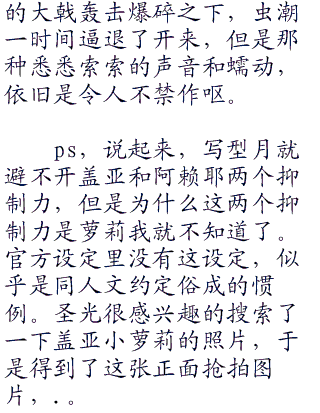 的大戟轰击爆碎之下，虫潮
一时间逼退了开来，但是那
种悉悉索索的声音和蠕动，
依旧是令人不禁作呕。
ps，说起来，写型月就
避不开盖亚和阿赖耶两个抑
制力，但是为什么这两个抑
制力是萝莉我就不知道了。
官方设定里没有这设定，似
乎是同人文约定俗成的惯
例。圣光很感兴趣的搜索了
一下盖亚小萝莉的照片，于
是得到了这张正面抢拍图
片，．。